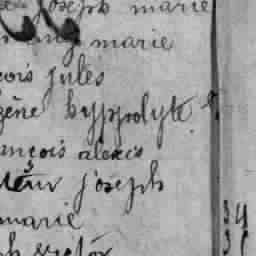 joseph marie
marie
çois jules
ène hyppolyte
ançois alexis
joseph
marie
ph victor
34